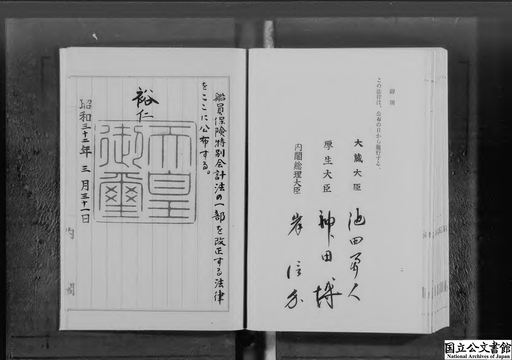 船員保険特別会計法の一部を改正する法律
をここに公布する。
裕仁
天皇
御璽
昭和三十二年三月三十一日
内閣
附則
この法律は、公布の日から施行する。
大蔵大臣 池田勇人
厚生大臣 神田博
内閣総理大臣 岸信介
国立公文書館
National Archives of Japan